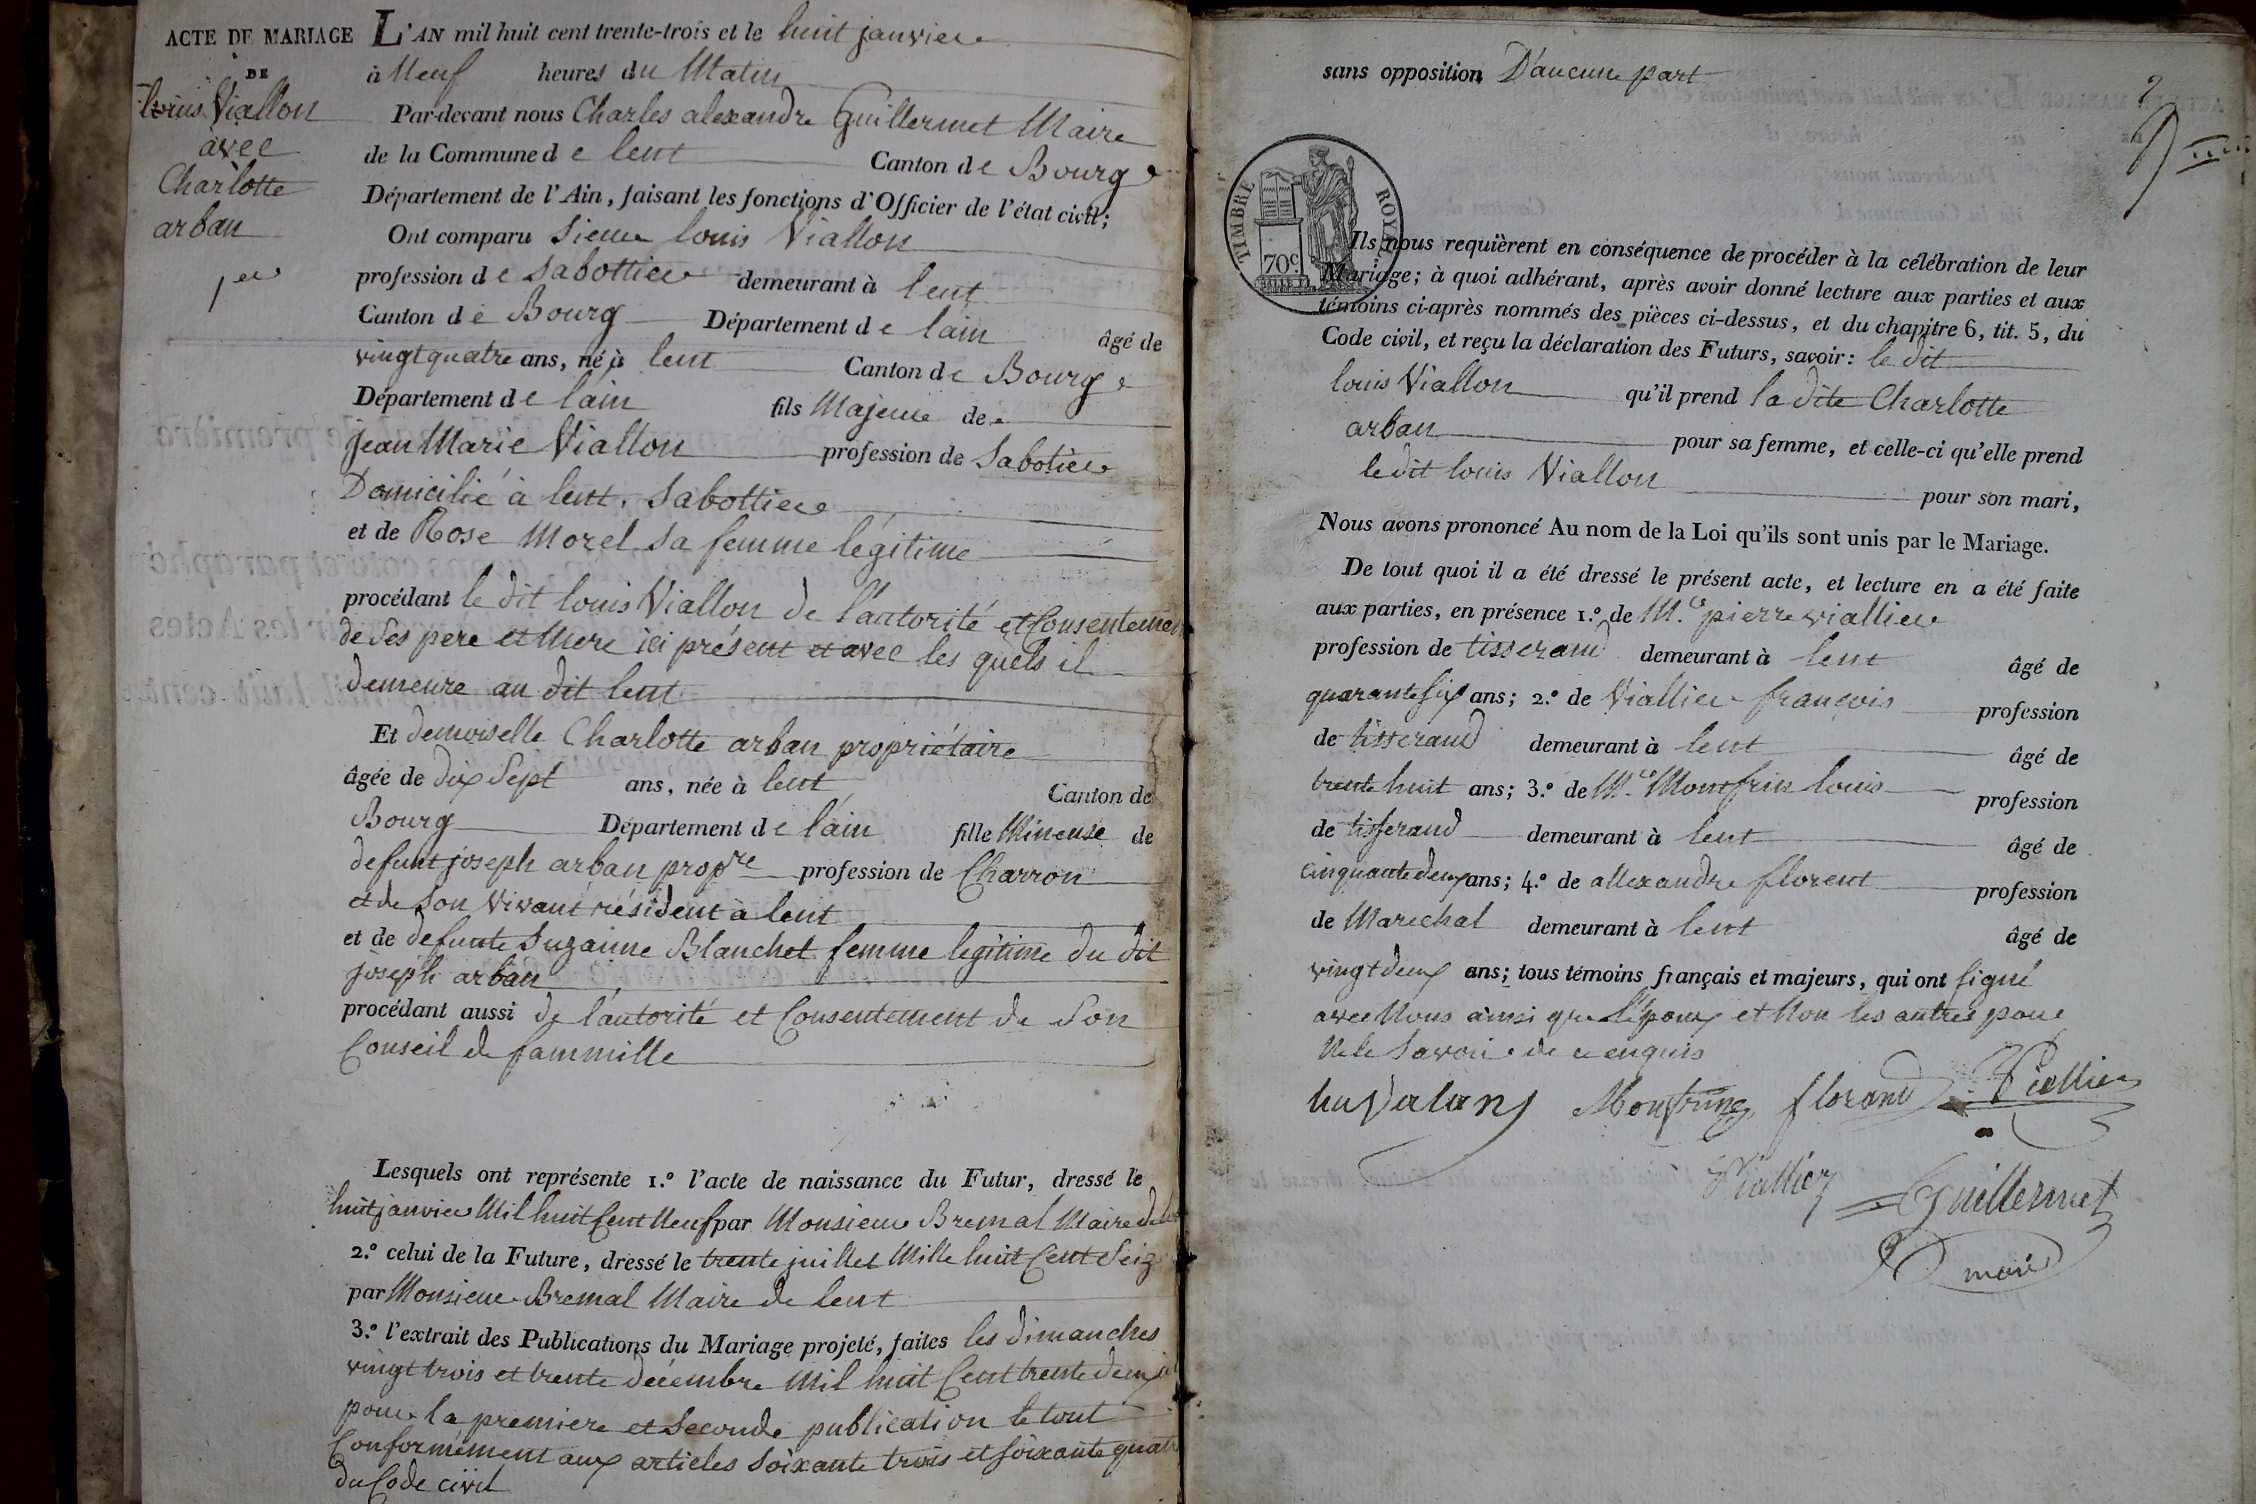 ACTE DE MARIAGE
DE
Louis Viallon
avec
Charlotte
arban
1er
L'AN mil huit cent trente-trois et le huit janvier
à Neuf heures du Matin
Par-devant nous Charles alexandre Guillermet Maire
de la Commune de lent Canton de Bourg
Département de l'Ain, faisant les fonctions d'Officier de l'état civil;
Ont comparu Sieur louis Viallon
profession de Sabottier demeurant à lent
Canton de Bourg Département de lain âgé de
vingt quatre ans, né à lent Canton de Bourg
Département de lain fils Majeur de
jean Marie Viallon profession de Sabotier
Domicilié à lent, Sabottier
et de Rose Morel sa femme légitime
procédant le dit louis Viallon de l'autorité et Consentemen
de Ses pere et Mere ici présent et avec les quels il
demeure au dit lent
Et demoiselle Charlotte arban propriétaire
âgée de dix Sept ans, née à lent Canton de
Bourg Département de lain fille Mineuse de
defunt joseph arban propre profession de Charron
et de Son Vivant résident à lent
et de defunte Suzanne Blanchet femme legitime du dit
joseph arban
procédant aussi de l'autorité et Consentement de Son
Conseil de fammille
Lesquels ont représente 1.º l'acte de naissance du Futur, dressé le
huit janvier Mil huit Cent Neuf par Monsieur Bremal Maire de
2.º celui de la Future, dressé le trente juillet Mille huit Cent Seiz
par Monsieur Bremal Maire de lent
3.º l'extrait des Publications du Mariage projeté, faites les dimanches
vingt trois et trente décembre Mil huit Cent trente deux
pour la premiere et Seconde publication le tout
Conformément aux articles Soixante trois et Soixante quat
du Code civil
sans opposition D'aucune part
2
TIMBRE ROYAL
70c
Ils nous requièrent en conséquence de procéder à la célébration de leur
Mariage; à quoi adhérant, après avoir donné lecture aux parties et aux
témoins ci-après nommés des pièces ci-dessus, et du chapitre 6, tit. 5, du
Code civil, et reçu la déclaration des Futurs, savoir: le dit
louis Viallon qu'il prend la dite Charlotte
arban pour sa femme, et celle-ci qu'elle prend
le dit louis Viallon pour son mari,
Nous avons prononcé Au nom de la Loi qu'ils sont unis par le Mariage.
De tout quoi il a été dressé le présent acte, et lecture en a été faite
aux parties, en présence 1.º de M.re pierre viallier
profession de tisserand demeurant à lent âgé de
quarante six ans; 2.º de Viallier françois profession
de tisserand demeurant à lent âgé de
trente huit ans; 3.º de M.re Montfrin louis profession
de tisserand demeurant à lent âgé de
cinquante deux ans; 4.º de allexandre florent profession
de Marechal demeurant à lent âgé de
vingt deux ans; tous témoins français et majeurs, qui ont signé
avec Nous ainsi que l'époux et Non les autres pour
Ne le Savoir de ce enquis
Montfring florand Viallier
Viallier Guillermet
maire